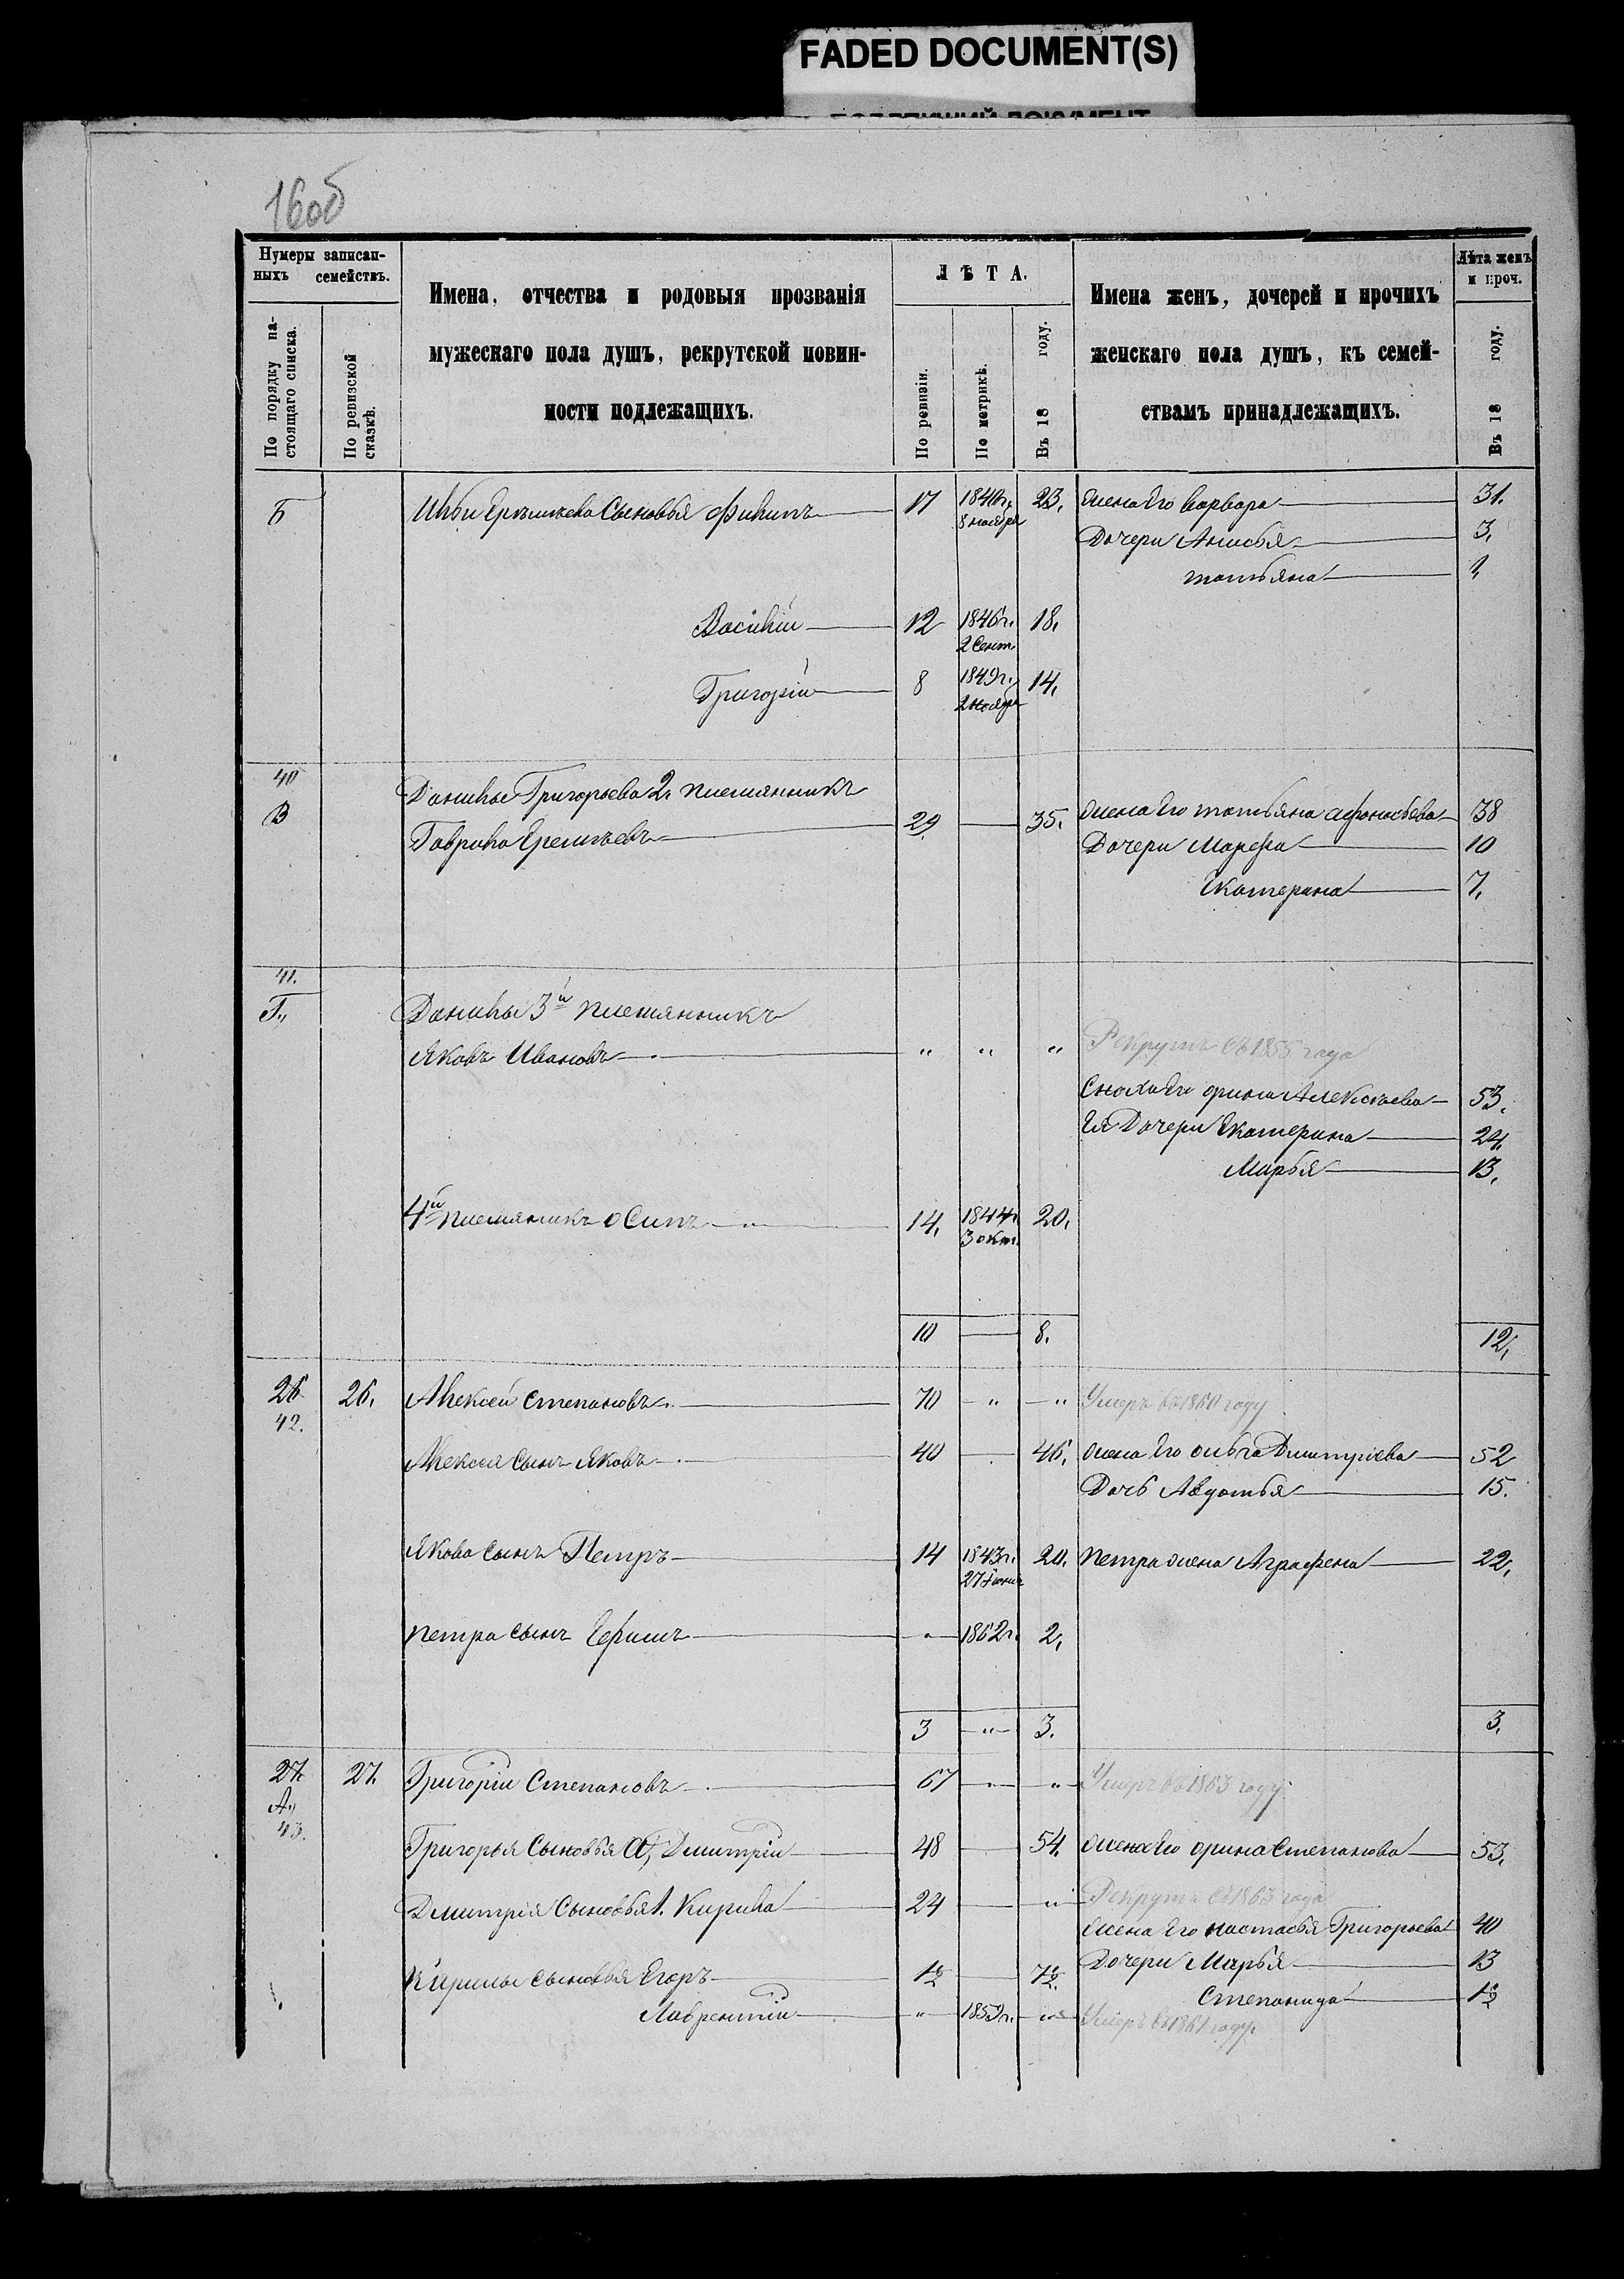 FADED DOCUMENT(S)
16об
Нумеры записан-
ныхъ семействъ.
По порядку на-
стоящаго списка.
По ревизской
сказкѣ.
Имена, отчества и родовыя прозванія
мужескаго пола душъ, рекрутской повин-
ности подлежащихъ.
ЛѢТА.
По ревизіи.
По метрикѣ.
Въ 18 году.
Имена женъ, дочерей и прочихъ
женскаго пола душъ, къ семей-
ствамъ принадлежащихъ.
Лѣта женъ
и проч.
Въ 18 году.
Б Сыновья Филипъ 17 23. жена Его варвара 31.
8 ноября
Дочери Анисья 3.
татьяна
Василій 12 1846г. 18.
2 Сент.
Григорій 8 1849г. 14.
2 Ноября
40
Данилы Григорьева 2й племянникъ
В Гаврила Еремѣевъ 29 35. жена Его татьяна афонасьева 38
Дочери Марфа 10
Екатерина 7.
41.
Г., Данилы 3й племянникъ
Яковъ Ивановъ " " " Рекрутъ съ 1855 года
Сноха Его орина Алексѣева 53.
Ея Дочери Екатерина 24.
Марья 13.
4й племяникъ осипъ 14. 1844г. 20.
3 окт.
10 8. 12.
26 26. Алексей степановъ 70 " " Умеръ въ 1860 году
42.
Алексея сынъ Яковъ 40 46. жена Его ольга Дмитріева 52
Дочь Авдотья 15.
Якова сынъ Петръ 14 1843г. 20. петра жена Аграфена 22.
27 Іюня
петра сынъ Ефимъ " 1862г. 2.
3 " 3. 3.
27. 27. Григорій Степановъ 67 " " Умеръ въ 1863 году
А.,
43.
Григорья Сыновья а, Дмитрій 48 54. жена Его орина Степанова 53.
Дмитрія Сыновья 1. Кирила 24 " Рекрутъ съ 1863 года
жена Его настасья Григорьева 40
Дочери Марья 13
Кирилы сыновья Егоръ 1½ 7½.
Степанида 1½
Лаврентій " 1859г. " Умеръ въ 1861 году